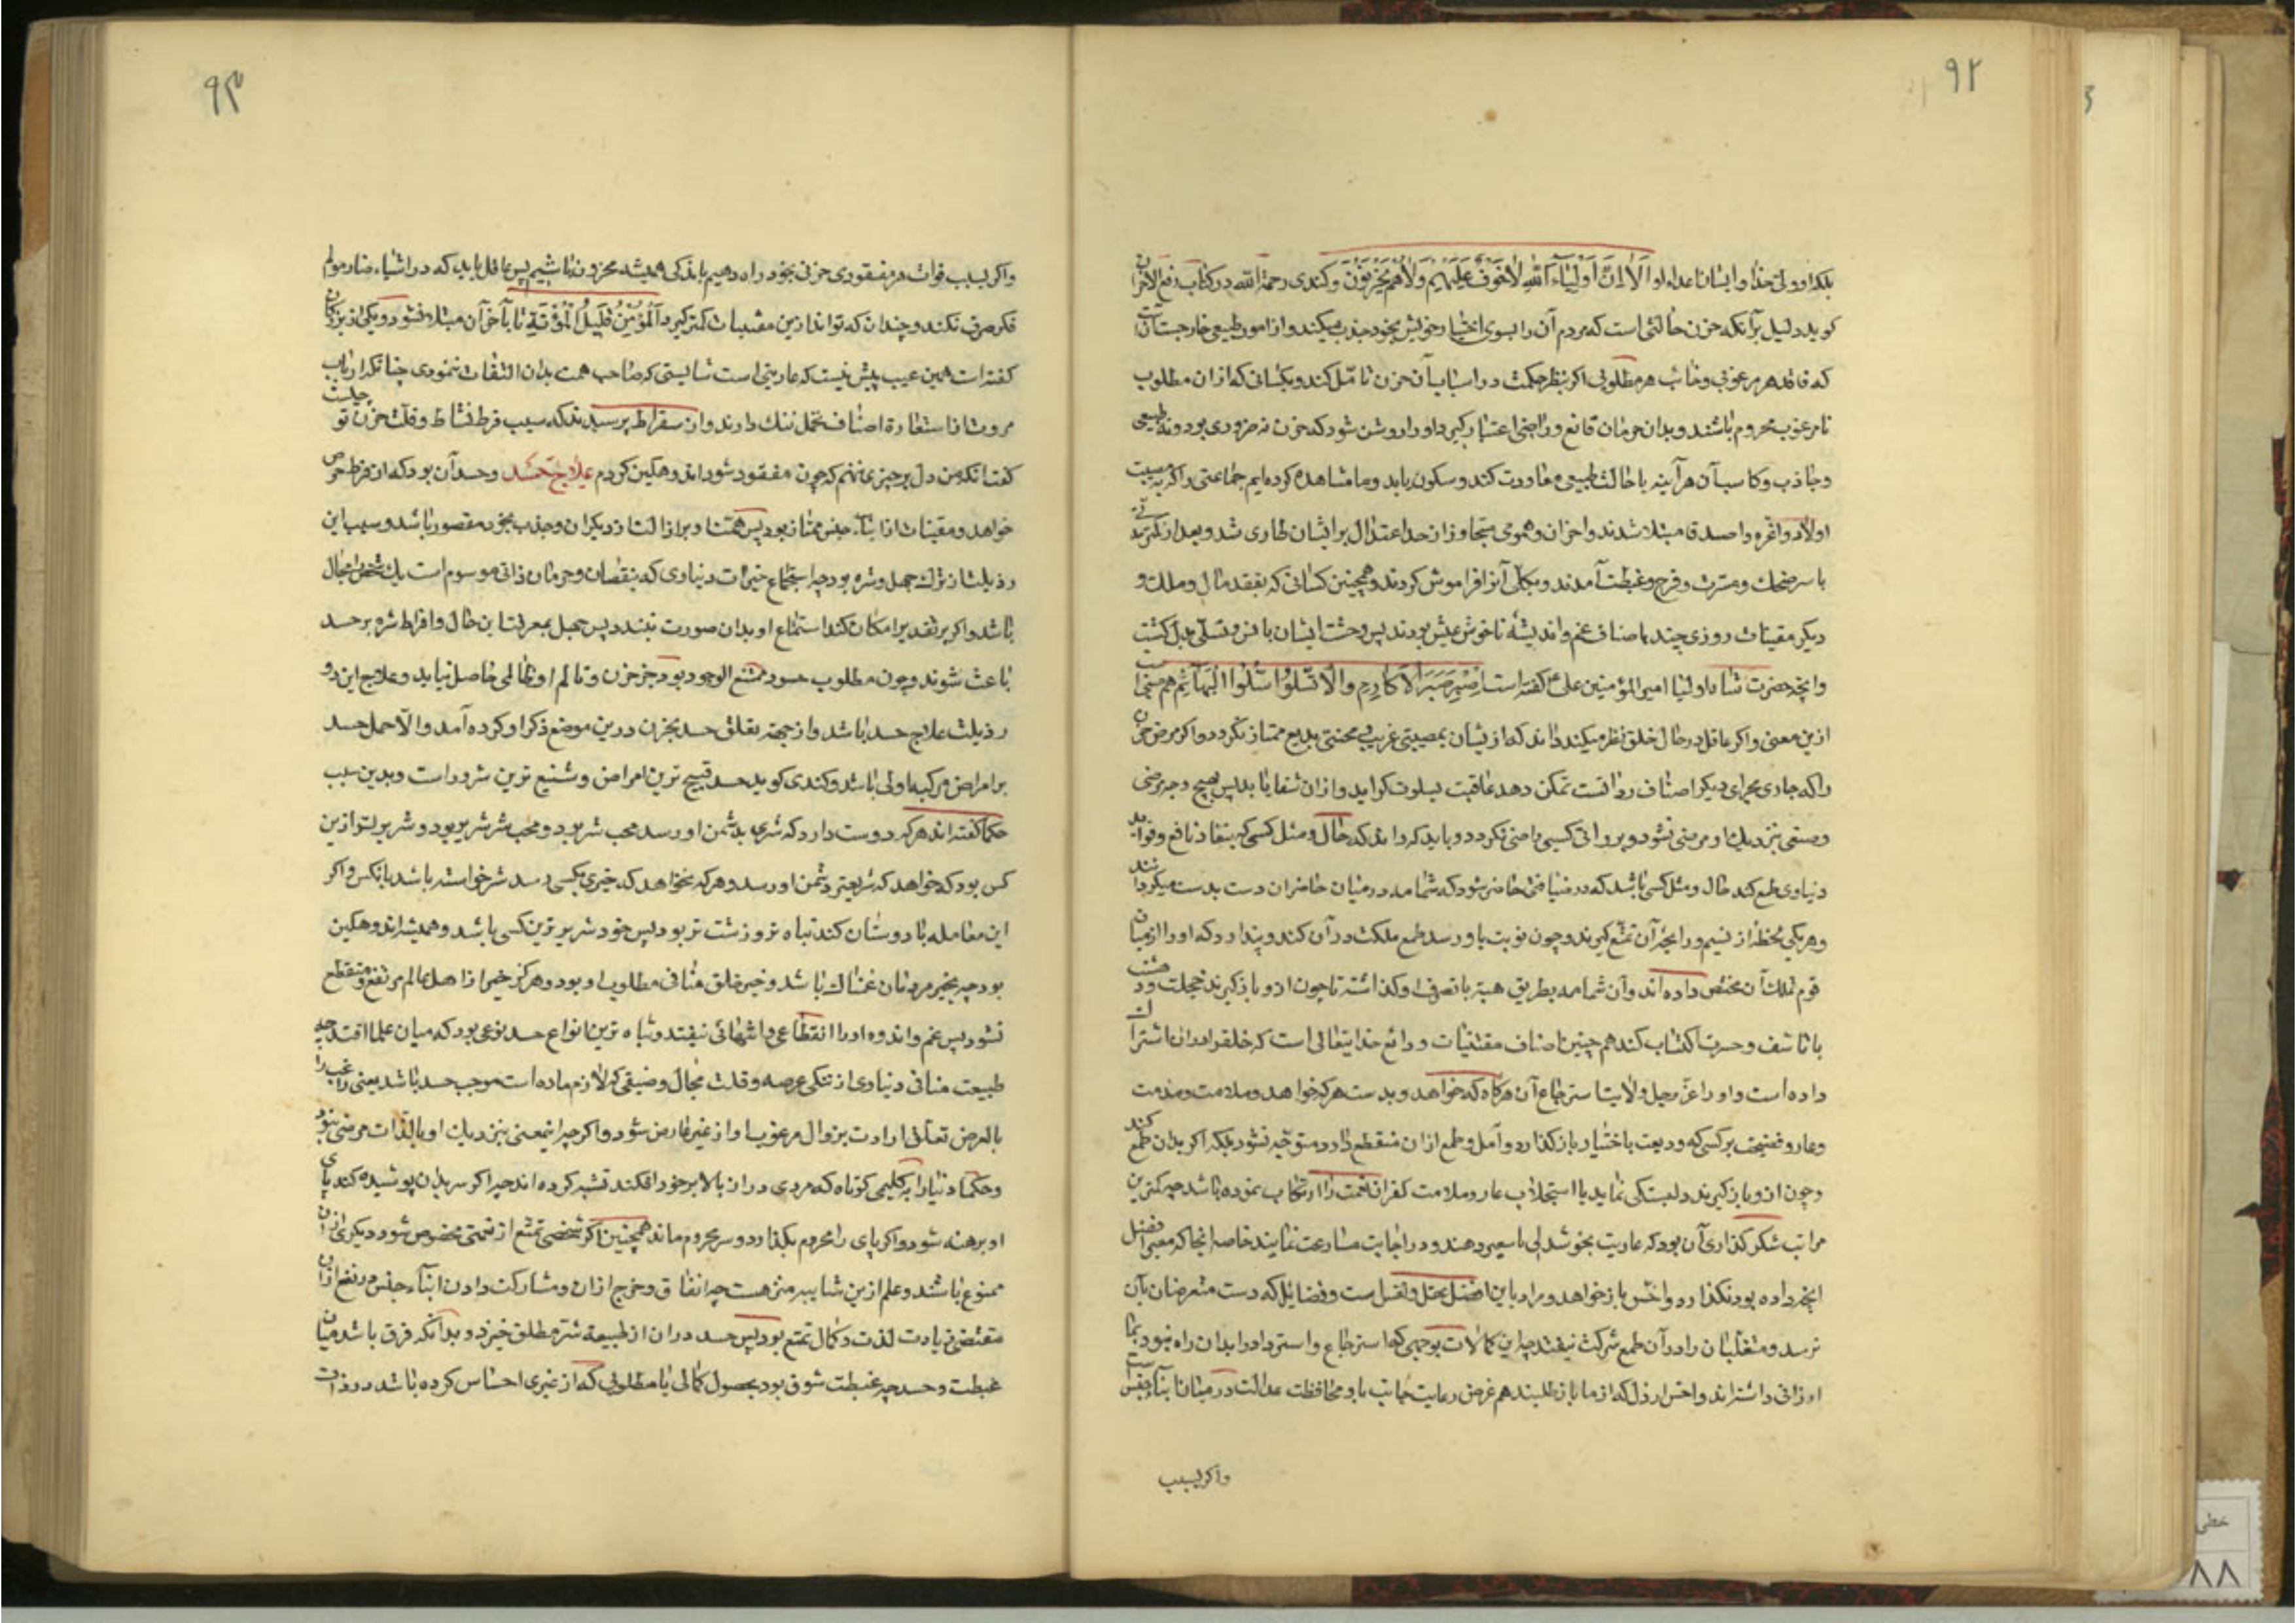 ۹۲
بلکه او ولی خدا و ایشان اعداء او الا ان اولیاء الله لا خوف علیهم ولا هم یحزنون و کندی رحمة الله در کتاب دفع الاحزان
کوید دلیل برآنکه حزن حالتی است که مردم آن را بسوی اختیار خویش بخود جذب میکنند و از امور طبیعی خارجست آنست
که فاقد هر مرغوبی و خائب هر مطلوبی اکر بنظر حکمت در اسباب آن حزن تامل کند و بکسانی که ازان مطلوب
نامرغوب محروم باشند و بدان حرمان قانع و راضی اعتبار کیرد او را روشن شود که حزن نه ضروری بود و نه طبیعی
و جاذب و کاسب آن هرآینه باحالت طبیعی معاودت کند و سکون یابد و ما مشاهده کرده ایم جماعتی را که بمصیبت
اولاد و اعزه و اصدقا مبتلا شدند و احزان و همومی متجاوز از حد اعتدال بر ایشان طاری شد و بعد از کمترمدتی
با سر ضحک و مسرت و فرح و غبطت آمدند و بکلی آنرا فراموش کردند و همچنین کسانی که بفقد مال و ملک و
دیکر مقتنیات روزی چند باصناف غم و اندیشه ناخوش عیش بودند پس وحشت ایشان بانس و تسلی بدل کشت
و آنچه حضرت شاه اولیا امیر المؤمنین علی ع گفته است اصبر صبر الاکارم والا تسلوا سلو البهائم هم منبی است
ازین معنی و اکر عاقل در حال خلق نظر میکند داند که ازیشان بمصیبتی غریب و محنتی بدیع ممتاز نکردد و اکر مرض حزن
را که جاری مجرای دیکر اصناف ردائت تمکن دهد عاقبت بسلوت کراید و ازان شفا یابد پس بهیچ وجه مرضی
وضعی نزدیک او مرضی نشود و برداتی کسبی راضی نکردد و باید که داند که حال و مثل کسی که بنفاد نافع و فواید
دنیاوی طمع کند حال و مثل کسی باشد که در ضیافتی حاضر شود که شمامه در میان حاضران دست بدست میکردانند
و هریکی لحظه از نسیم و رایحه آن تمتع کیرند و چون نوبت باو رسد طمع ملکت درآن کند و پندارد که او را از میان
قوم بملک آن مختص داده اند و آن شمامه بطریق هبه با تصرف او کذاشته تا چون ازو باز کیرند خجلت و دهشت
با تأسف و حسرت اکتساب کند هم چنین اصناف مقتنیات ودائع خدایتعالی است که خلق را دران اشتراک
داده است و او را عز و جل ولایت استرجاع آن هرکاه که خواهد و بدست هرکه خواهد و ملامت و مذمت
و عار و فضیحت برکسی که ودیعت باختیار باز کذارد و امل و طمع ازان منقطع دارد متوجه نشود بلکه اکر بدان طمع کند
و چون ازو باز کیرند دلتنکی نماید با استجلاب عار و ملامت کفران نعمت را ارتکاب نموده باشد چه کمترین
مراتب شکر کذاری آن بود که عاریت بخوشدلی با معیر دهند و در اجابت مسارعت نمایند خاصه آنجا که معیر افضل
آنچه داده بود نکذارد و اخس باز خواهد و مراد باین افضل عقل و نفس است و فضایلی که دست متعرضان بآن
نرسد و متغلبان را درآن طمع شرکت نیفتد چه این کمالات بوجهی که استرجاع و استرداد را بدان راه نبود بما
ارزانی داشته اند و اخس ارذل که از ما باز طلبند هم غرض رعایت جانب ما و محافظت عدالت در میان ابنآء جنس است
واکر بسبب
۹۳
واکر بسبب فوات هر مفقودی حزنی بخود راه دهیم باید که همیشه محزون باشیم پس عاقل باید که در اشیاء ضار مولم
فکر صرف نکند و چندان که تواند ازین مقتنیات کمتر کیرد المؤمن قلیل المؤنة تا بآخران مبتلا نشود و یکی از بزرکان
کفته است همین عیب بیش نیست که عاریتی است شایستی که صاحب همت بدان التفات ننمودی چنانکه ارباب
مروت از استعارة اصناف تجمل ننک دارند و از سقراط پرسیدند که سبب فرط نشاط و قلت حزن تو چیست
کفت آنکه من دل بر چیزی ننهم که چون مفقود شود اندوهکین کردم علاج حسد و حسد آن بود که از فرط حرص
خواهد و مقتنیات از ابنآء جنس ممتاز بود پس همتش بر ازالت از دیکران و جذب بخود مقصور باشد و سبب این
رذیلت از ترکب جهل و شره بود چه استجماع خیرات دنیاوی که بنقصان و حرمان ذاتی موسوم است یک شخص را محال
باشد و اکر بر تقدیر امکان کند استمتاع او بدان صورت نبندد پس جهل بمعرفت این حال و افراط شره بر حسد
باعث شوند و چون مطلوب حسود ممتنع الوجود بود جز حزن و تالم او طائلی حاصل نیاید و علاج این دو
رذیلت علاج حسد باشد و از جهة تعلق حسد بحزن درین موضع ذکر او کرده آمد و الا حمل حسد
بر امراض مرکبه اولی باشد و کندی کوید حسد قبیح ترین امراض و شنیع ترین شرور است و بدین سبب
حکما کفته اند هرکه دوست دارد که شری بدشمن او رسد محب شر بود و محب شر شریر بود و شریرتر ازین
کس بود که خواهد که شر بغیر دشمن او رسد و هرکه نخواهد که خیری بکسی رسد شر خواسته باشد بآنکس و اکر
این معامله با دوستان کند تباه تر و زشت تر بود پس حسود شریر ترین کسی باشد و همیشه اندوهکین
بود چه بخیر مردمان غمناک باشد و خیر خلق منافی مطلوب او بود و هرکز خیر از اهل عالم مرتفع و منقطع
نشود پس غم و اندوه او را انقطاعی و انتهائی نیفتد و تباه ترین انواع حسد نوعی بود که میان علما افتد چه
طبیعت منافی دنیاوی از تنکی عرصه و قلت مجال و ضیقی که لازم ماده است موجب حسد باشد یعنی راغب را
بالعرض تعلق ارادت بزوال مرغوب او از غیر عارض شود و اکرچه اینمعنی بنزدیک او بالذات مرضی نبود
و حکما دنیا را بکلیمی کوتاه که مردی دراز بالا بر خود افکند تشبیه کرده اند چه اکر سر بدان پوشیده کند پای
او برهنه شود و اکر پای را محروم نکذارد سر محروم ماند همچنین اکر شخصی بتمتع از نعمتی مخصوص شود دیکری ازان
ممنوع باشد و علم ازین شایبه منزهست چه انفاق و خرج ازان و مشارکت دادن ابنآء جنس در نفع ازان
مقتضی زیادت لذت و کمال تمتع بود پس حسد دران از طبیعة شر مطلق خیزد و بدانکه فرق باشد میان
غبطت و حسد چه غبطت شوق بود بحصول کمالی یا مطلوبی که از غیری احساس کرده باشد در ذات
خطی
۸۸